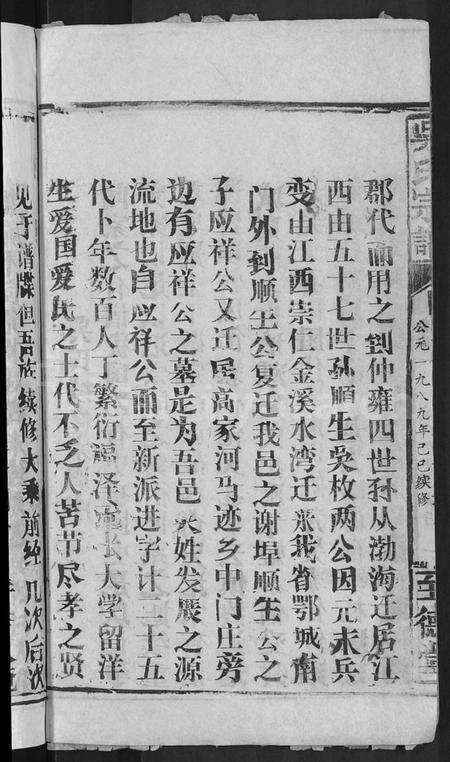 吴氏宗譜
公元一九八九年己巳续修
至德堂
郡代而用之到仲雍四世孙从渤海迁居江
西由五十七世孙顺生吳枚两公因元末兵
变由江西崇仁金溪水湾迁来我省鄂城南
门外到顺生公复迁我邑之谢埠顺生公之
子应祥公又迁居高家河马迹乡中门庄旁
边有应祥公之墓是为吾邑吴姓发展之源
流地也自应祥公而至新派进字计二十五
代卜年数百人丁繁衍福泽 长大学留洋
生爱国爱民之士代不乏人苦节尽孝之贤
见于谱牒但吾族续修大乘前经几次后次